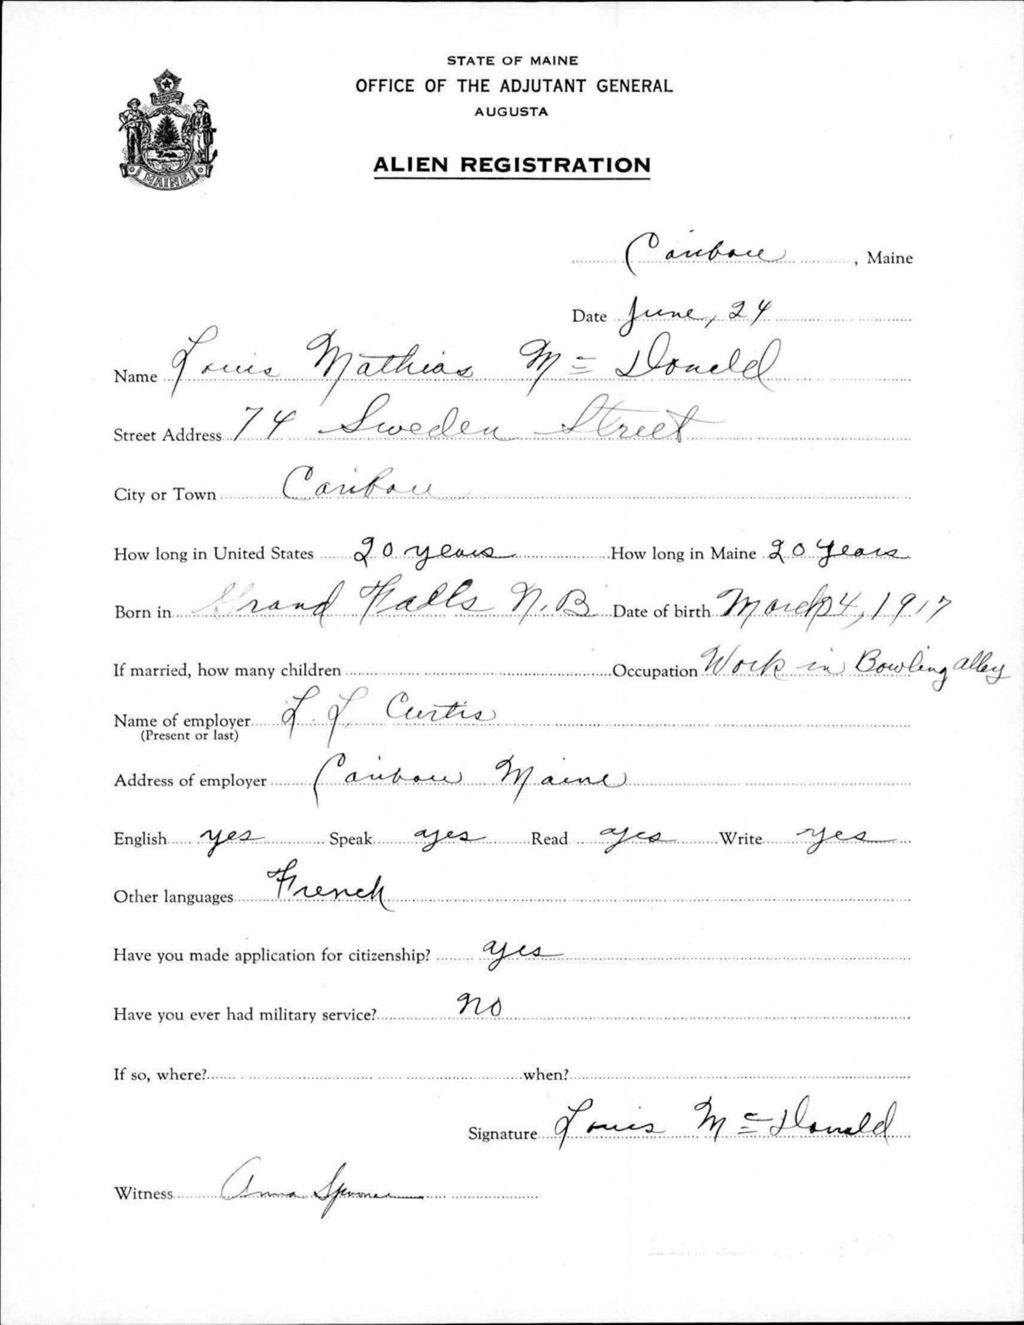 STATE OF MAINE
OFFICE OF THE ADJUTANT GENERAL
AUGUSTA
ALIEN REGISTRATION
MAINE
Caribou, Maine
Date June, 24
Name Louis Mathias Mc Donald
Street Address 74 Sweden Street
City or Town Caribou
How long in United States 20 years How long in Maine 20 years
Born in Grand Falls N.B. Date of birth March 4, 1917
If married, how many children Occupation Work in Bowling alley
Name of employer L. L. Curtis
(Present or last)
Address of employer Caribou Maine
English yes Speak yes Read yes Write yes
Other languages French
Have you made application for citizenship? yes
Have you ever had military service? no
If so, where? when?
Signature Louis Mc Donald
Witness Anna Spooner